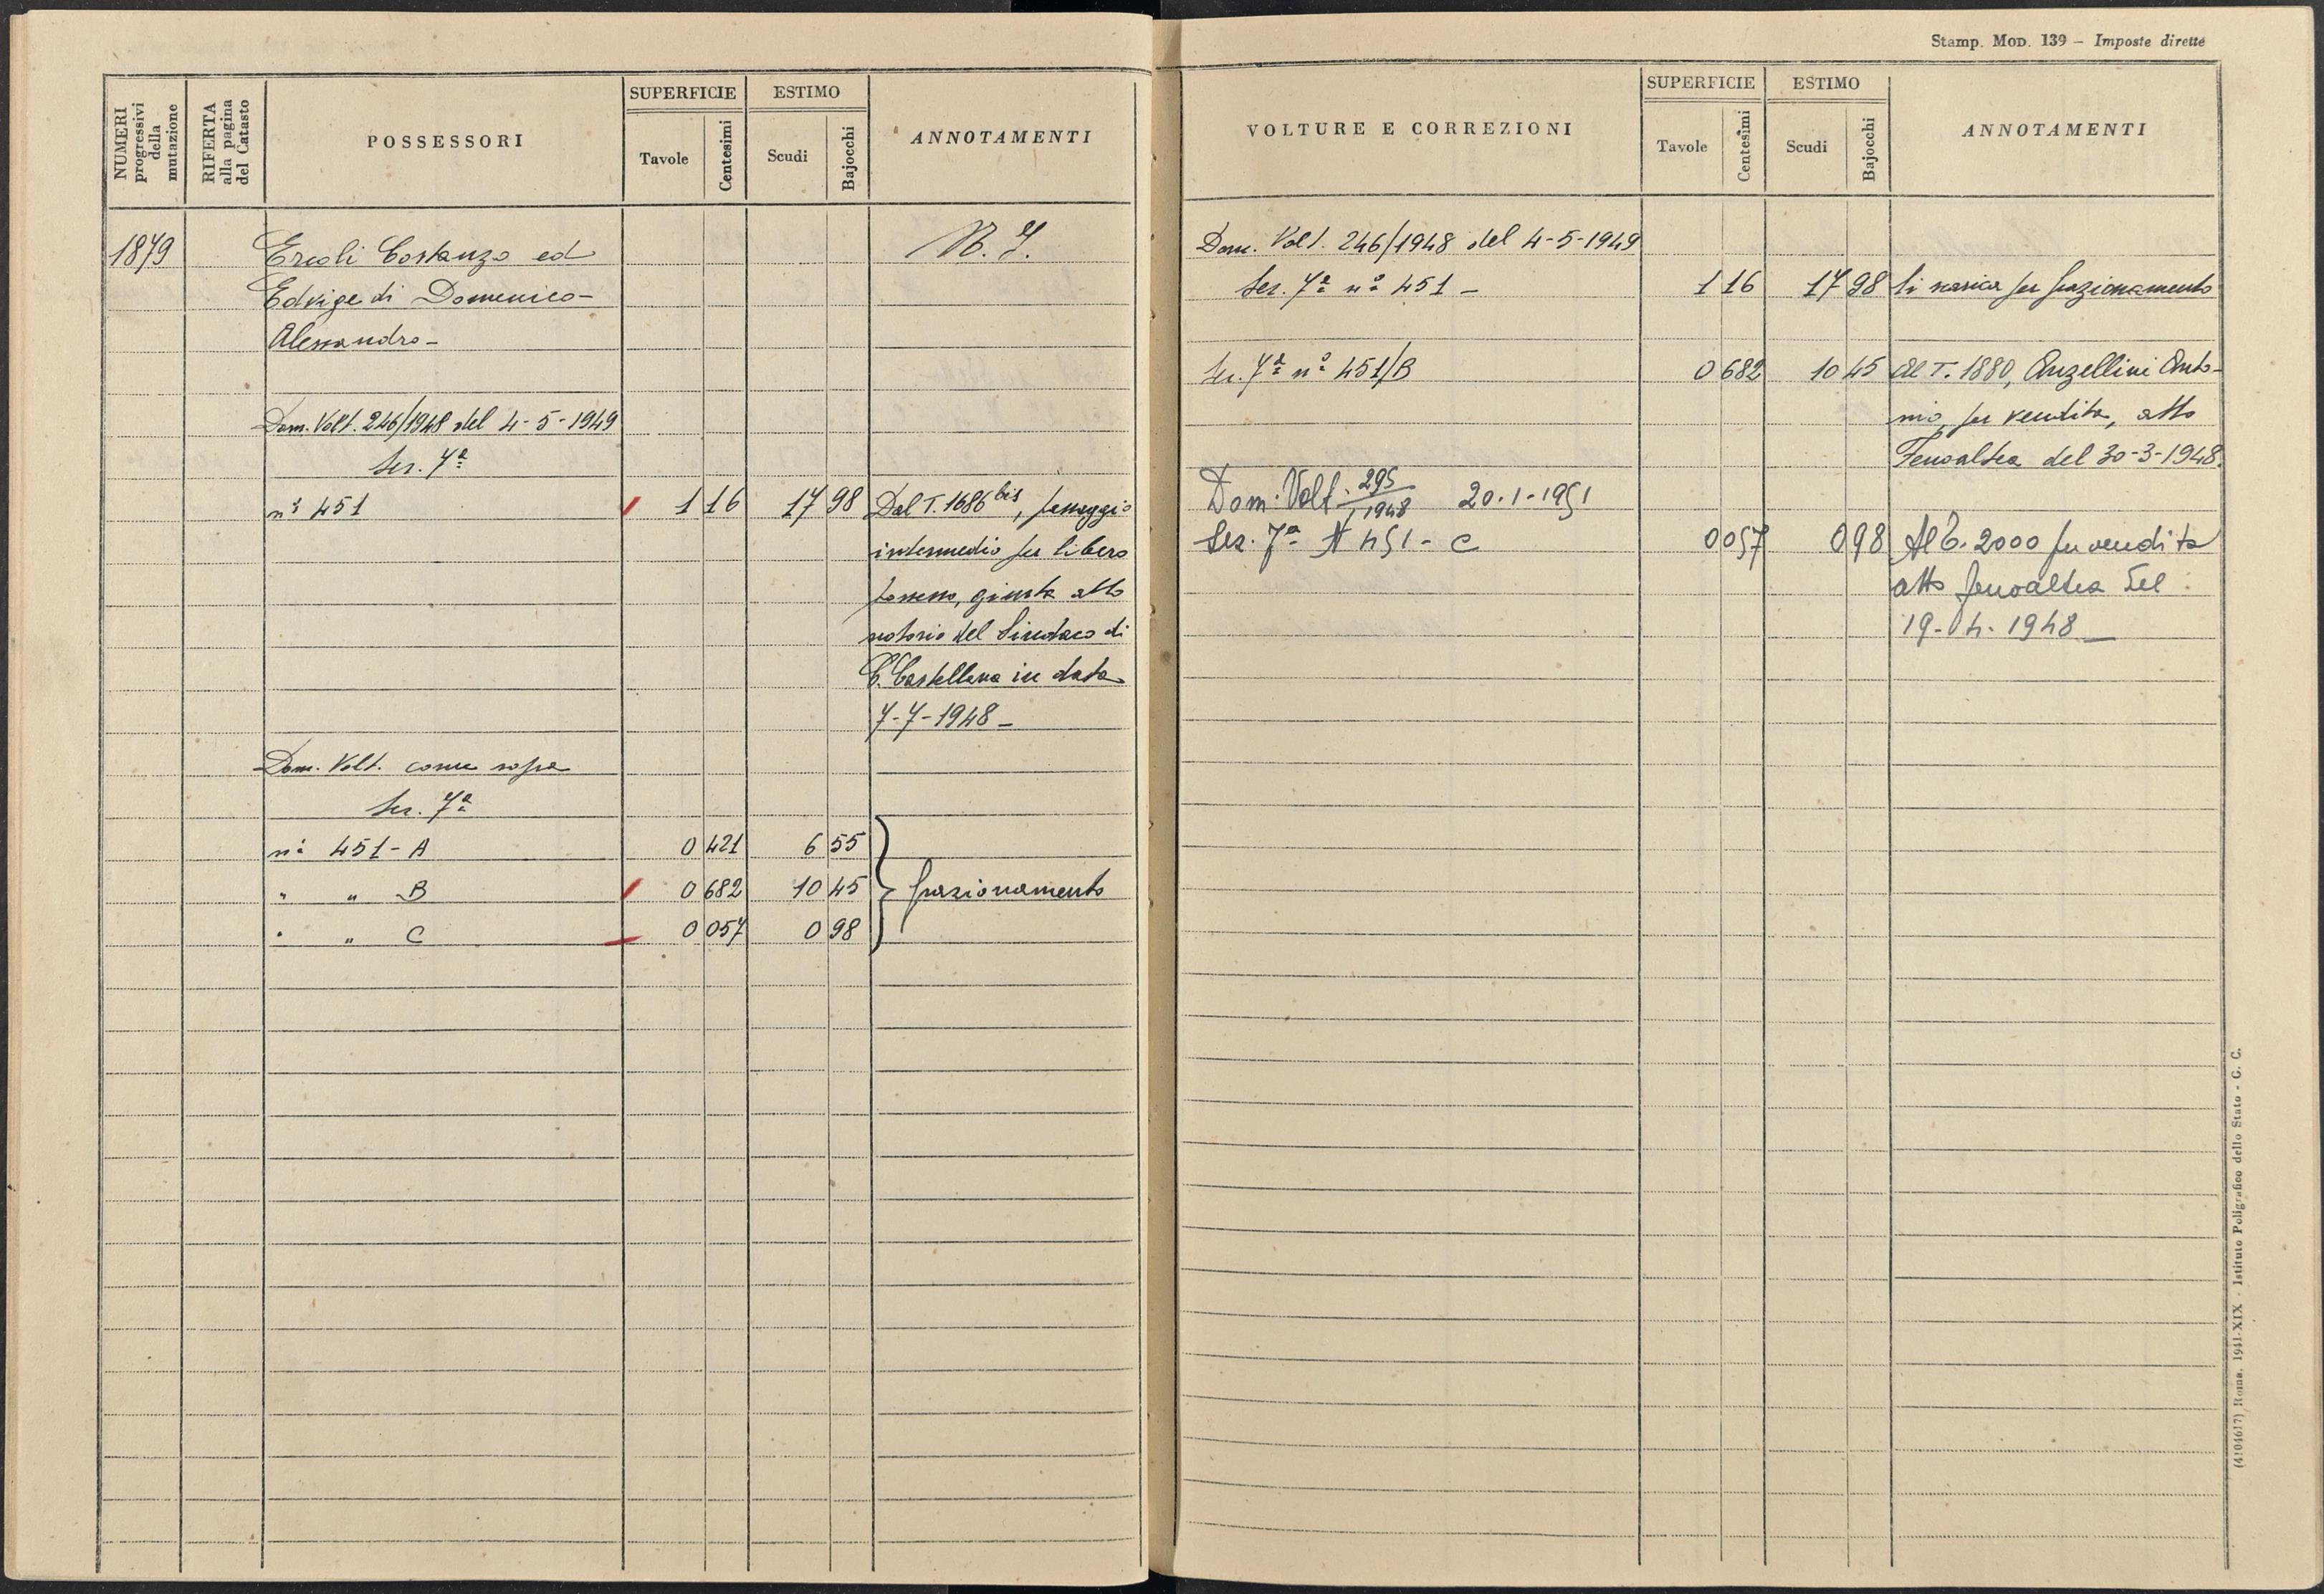 NUMERI progressivi della mutazione
RIFERTA alla pagina del Catasto
POSSESSORI
SUPERFICIE
Tavole
Centesimi
ESTIMO
Scudi
Bajocchi
ANNOTAMENTI
1879
Ercoli Costanzo ed
N. I.
Edvige di Domenico-
Alessandro -
Dom. Volt. 246/1948 del 4-5-1949
Sez. 7ª
nº 451 1 16 17 98 Dal T. 1686 bis, passaggio
intermedio per libero
possesso, giusta atto
notorio del Sindaco di
C. Castellana in data
7-7-1948 -
Dom. Volt. come sopra
Sez. 7ª
nº 451 - A 0 421 6 55
" " B 0 682 10 45 frazionamento
" " C 0 057 0 98
Stamp. Mod. 139 - Imposte dirette
VOLTURE E CORREZIONI
SUPERFICIE
Tavole
Centesimi
ESTIMO
Scudi
Bajocchi
ANNOTAMENTI
Dom. Volt. 246/1948 del 4-5-1949
Sez. 7ª nº 451 - 1 16 17 98 Si scarica per frazionamento
Sez. 7ª nº 451/B 0 682 10 45 Al T. 1880, Anzellini Anto-
nio, per vendita, atto
Fenoaltea del 30-3-1948.
Dom. Volt. 295/1948 20-1-1951
Sez. 7ª N 451 - C 0 057 0 98 Al T. 2000 per vendita
atto Fenoaltea del
19-4-1948 -
(4104617) Roma, 1941-XIX - Istituto Poligrafico dello Stato - G. C.